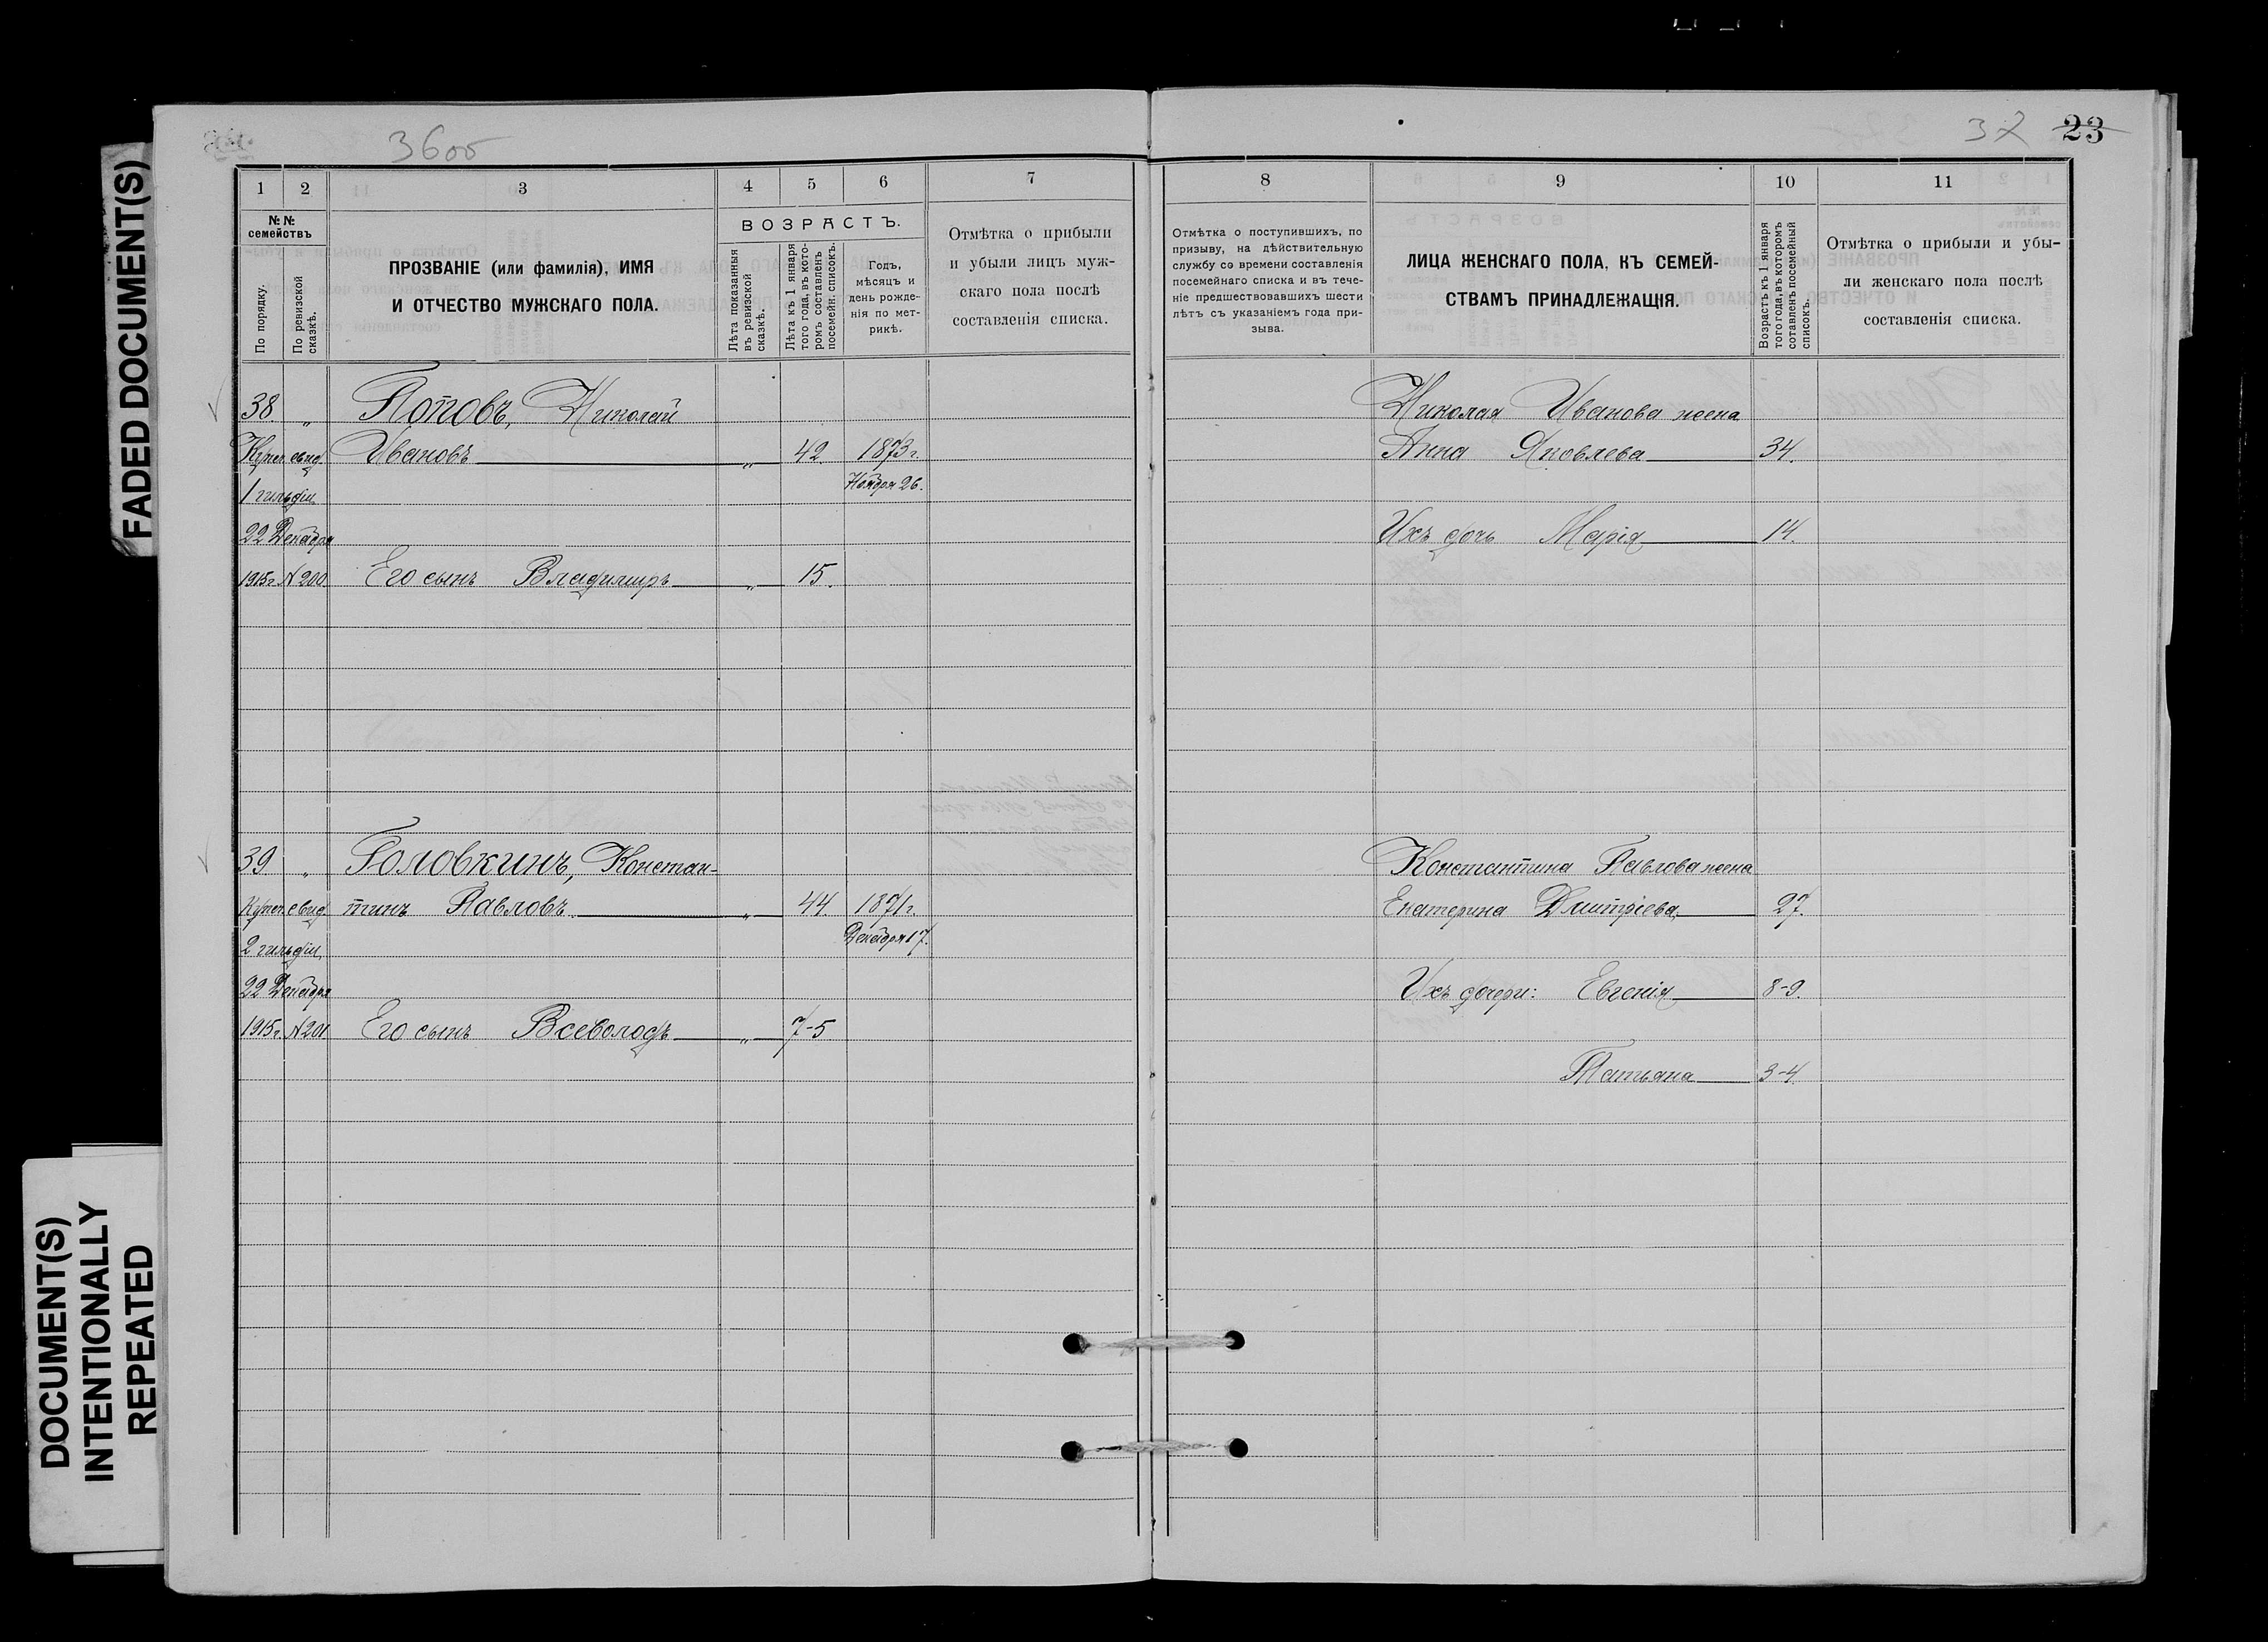 FADED DOCUMENT(S)
DOCUMENT(S)
INTENTIONALLY
REPEATED
3600
1 2 3 4 5 6 7
№ №
семействъ
По порядку.
По ревизской
сказкѣ.
ПРОЗВАНІЕ (или фамилія), ИМЯ
И ОТЧЕСТВО МУЖСКАГО ПОЛА.
ВОЗРАСТЪ.
Лѣта показанныя
въ ревизской
сказкѣ.
Лѣта къ 1 января
того года, въ кото-
ромъ составленъ
посемейн. списокъ.
Годъ,
мѣсяцъ и
день рожде-
нія по мет-
рикѣ.
Отмѣтка о прибыли
и убыли лицъ муж-
скаго пола послѣ
составленія списка.
38 „ Поповъ, Николай
Купеч. свид. Ивановъ „ 42. 1873 г.
1 гильдіи Ноября 26.
22 Декабря
1915 г. № 200. Его сынъ Владимиръ „ 15.
39 „ Головкинъ, Констан-
Купеч. свид. тинъ Павловъ „ 44. 1871 г.
2 гильдіи, Декабря 17.
22 Декабря
1915 г. № 201. Его сынъ Всеволодъ „ 7-5
32 23
8 9 10 11
Отмѣтка о поступившихъ, по
призыву, на дѣйствительную
службу со времени составленія
посемейнаго списка и въ тече-
ніе предшествовавшихъ шести
лѣтъ съ указаніемъ года при-
зыва.
ЛИЦА ЖЕНСКАГО ПОЛА, КЪ СЕМЕЙ-
СТВАМЪ ПРИНАДЛЕЖАЩІЯ.
Возрастъ къ 1 января
того года, въ которомъ
сотавленъ посемейный
списокъ.
Отмѣтка о прибыли и убы-
ли женскаго пола послѣ
составленія списка.
Николая Иванова жена
Анна Яковлева 34.
Ихъ дочь Марія 14.
Константина Павлова жена
Екатерина Дмитріева 27.
Ихъ дочери: Евгенія 8-9.
Татьяна 3-4.